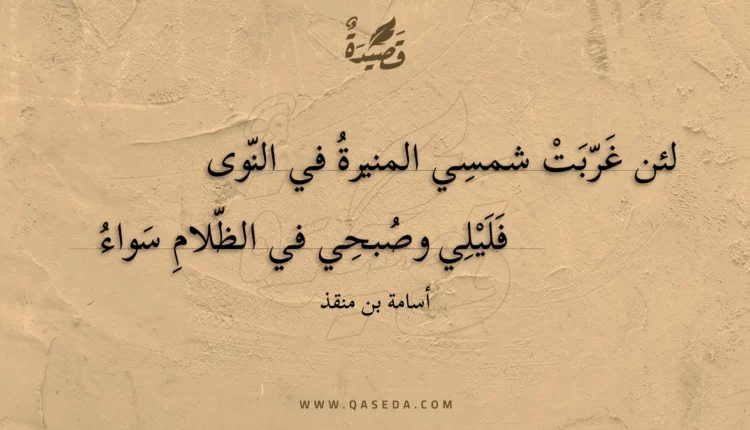 قَصِيْدَةٌ
لئن غَرّبَتْ شمسِي المنيرةُ في النّوى
فَلَيْلِي وصُبحِي في الظّلامِ سَواءُ
أسامة بن منقذ
WWW.QASEDA.COM